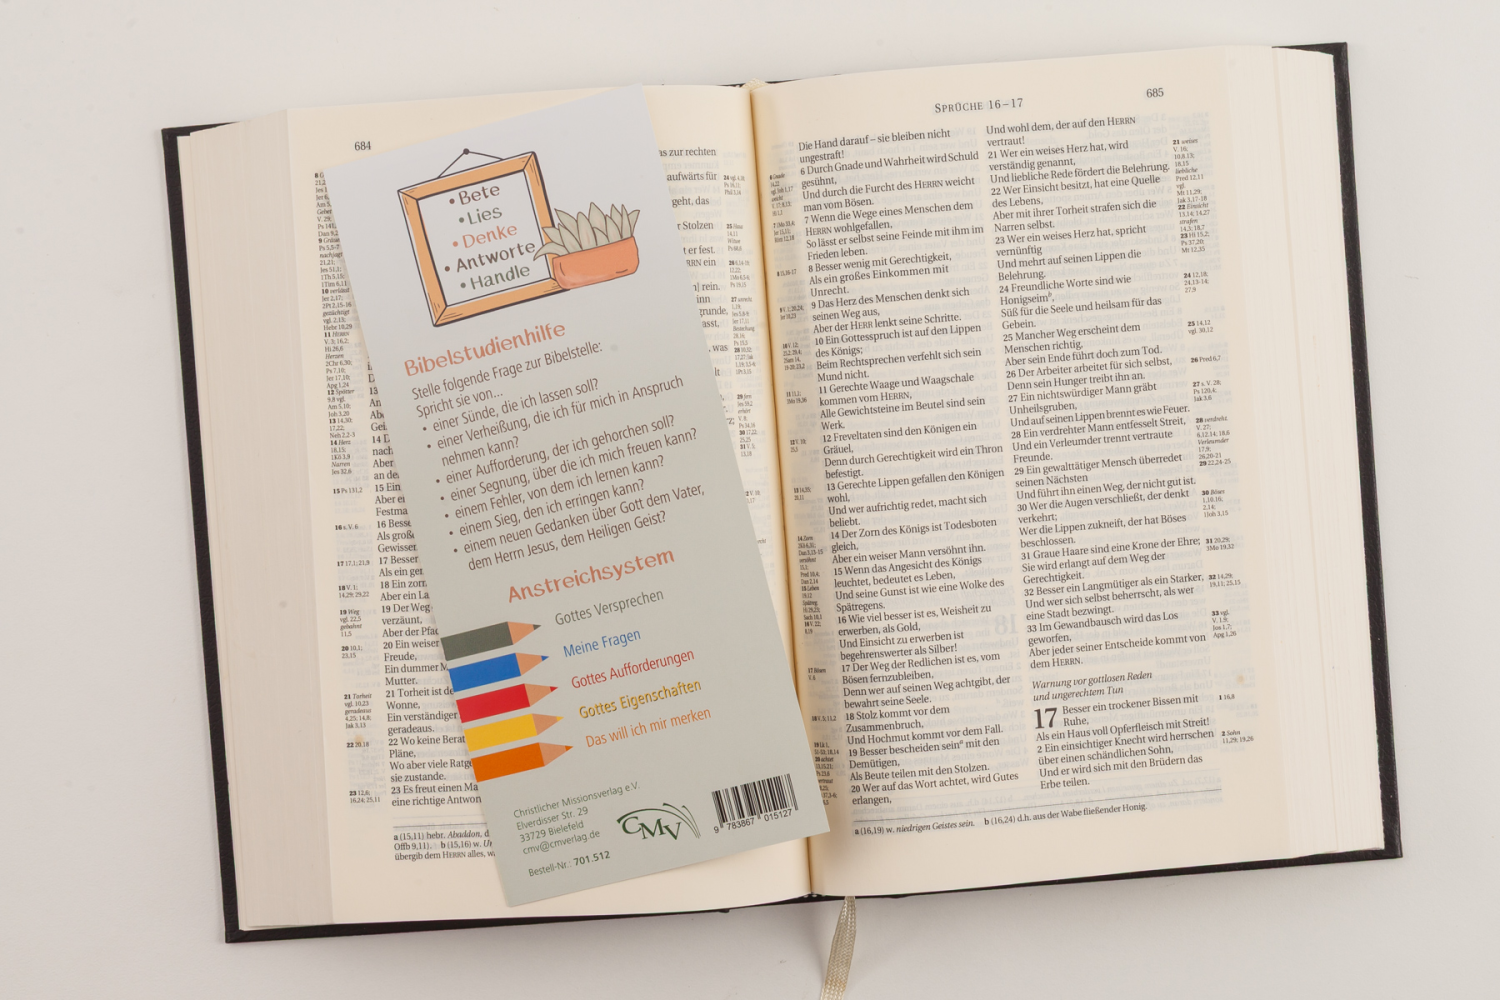 684
as zur rechten
aufwärts für
geht, das
r Stolzen
t er fest.
RRN ein
] rein.
inn
grunde,
asst,
, was
lt
14 D
nach
Aber
an de
15 Ein
Aber ei
Festma
16 Besse
Als große
Gewisser
17 Besser
Als ein ger
18 Ein zorr
Aber ein La
19 Der Weg
verzäunt,
Aber der Pfad
20 Ein weiser
Freude,
Ein dummer M
Mutter.
21 Torheit ist de
Wonne,
Ein verständiger
geradeaus.
22 Wo keine Berat
Pläne,
Wo aber viele Ratge
sie zustande.
23 Es freut einen Ma
eine richtige Antwor
a (15,11) hebr. Abaddon, d
Offb 9,11). b (15,16) w. Ur
übergib dem HERRN alles, w
• Bete
• Lies
• Denke
• Antworte
• Handle
Bibelstudienhilfe
Stelle folgende Frage zur Bibelstelle:
Spricht sie von...
• einer Sünde, die ich lassen soll?
• einer Verheißung, die ich für mich in Anspruch
nehmen kann?
• einer Aufforderung, der ich gehorchen soll?
• einer Segnung, über die ich mich freuen kann?
• einem Fehler, von dem ich lernen kann?
• einem Sieg, den ich erringen kann?
• einem neuen Gedanken über Gott dem Vater,
dem Herrn Jesus, dem Heiligen Geist?
Anstreichsystem
Gottes Versprechen
Meine Fragen
Gottes Aufforderungen
Gottes Eigenschaften
Das will ich mir merken
Christlicher Missionsverlag e.V.
Elverdisser Str. 29
33729 Bielefeld
cmv@cmverlag.de
Bestell-Nr.: 701.512
CMV
9 783867 015127
SPRÜCHE 16–17
685
Die Hand darauf – sie bleiben nicht
ungestraft!
6 Durch Gnade und Wahrheit wird Schuld
gesühnt,
Und durch die Furcht des HERRN weicht
man vom Bösen.
7 Wenn die Wege eines Menschen dem
HERRN wohlgefallen,
So lässt er selbst seine Feinde mit ihm im
Frieden leben.
8 Besser wenig mit Gerechtigkeit,
Als ein großes Einkommen mit
Unrecht.
9 Das Herz des Menschen denkt sich
seinen Weg aus,
Aber der HERR lenkt seine Schritte.
10 Ein Gottesspruch ist auf den Lippen
des Königs;
Beim Rechtsprechen verfehlt sich sein
Mund nicht.
11 Gerechte Waage und Waagschale
kommen vom HERRN,
Alle Gewichtsteine im Beutel sind sein
Werk.
12 Freveltaten sind den Königen ein
Gräuel,
Denn durch Gerechtigkeit wird ein Thron
befestigt.
13 Gerechte Lippen gefallen den Königen
wohl,
Und wer aufrichtig redet, macht sich
beliebt.
14 Der Zorn des Königs ist Todesboten
gleich,
Aber ein weiser Mann versöhnt ihn.
15 Wenn das Angesicht des Königs
leuchtet, bedeutet es Leben,
Und seine Gunst ist wie eine Wolke des
Spätregens.
16 Wie viel besser ist es, Weisheit zu
erwerben, als Gold,
Und Einsicht zu erwerben ist
begehrenswerter als Silber!
17 Der Weg der Redlichen ist es, vom
Bösen fernzubleiben,
Denn wer auf seinen Weg achtgibt, der
bewahrt seine Seele.
18 Stolz kommt vor dem
Zusammenbruch,
Und Hochmut kommt vor dem Fall.
19 Besser bescheiden seinª mit den
Demütigen,
Als Beute teilen mit den Stolzen.
20 Wer auf das Wort achtet, wird Gutes
erlangen,
Und wohl dem, der auf den HERRN
vertraut!
21 Wer ein weises Herz hat, wird
verständig genannt,
Und liebliche Rede fördert die Belehrung.
22 Wer Einsicht besitzt, hat eine Quelle
des Lebens,
Aber mit ihrer Torheit strafen sich die
Narren selbst.
23 Wer ein weises Herz hat, spricht
vernünftig
Und mehrt auf seinen Lippen die
Belehrung.
24 Freundliche Worte sind wie
Honigseimᵇ,
Süß für die Seele und heilsam für das
Gebein.
25 Mancher Weg erscheint dem
Menschen richtig,
Aber sein Ende führt doch zum Tod.
26 Der Arbeiter arbeitet für sich selbst,
Denn sein Hunger treibt ihn an.
27 Ein nichtswürdiger Mann gräbt
Unheilsgruben,
Und auf seinen Lippen brennt es wie Feuer.
28 Ein verdrehter Mann entfesselt Streit,
Und ein Verleumder trennt vertraute
Freunde.
29 Ein gewalttätiger Mensch überredet
seinen Nächsten
Und führt ihn einen Weg, der nicht gut ist.
30 Wer die Augen verschließt, der denkt
verkehrt;
Wer die Lippen zukneift, der hat Böses
beschlossen.
31 Graue Haare sind eine Krone der Ehre;
Sie wird erlangt auf dem Weg der
Gerechtigkeit.
32 Besser ein Langmütiger als ein Starker,
Und wer sich selbst beherrscht, als wer
eine Stadt bezwingt.
33 Im Gewandbausch wird das Los
geworfen,
Aber jeder seiner Entscheide kommt von
dem HERRN.
Warnung vor gottlosen Reden
und ungerechtem Tun
17 Besser ein trockener Bissen mit
Ruhe,
Als ein Haus voll Opferfleisch mit Streit!
2 Ein einsichtiger Knecht wird herrschen
über einen schändlichen Sohn,
Und er wird sich mit den Brüdern das
Erbe teilen.
a (16,19) w. niedrigen Geistes sein. b (16,24) d.h. aus der Wabe fließender Honig.